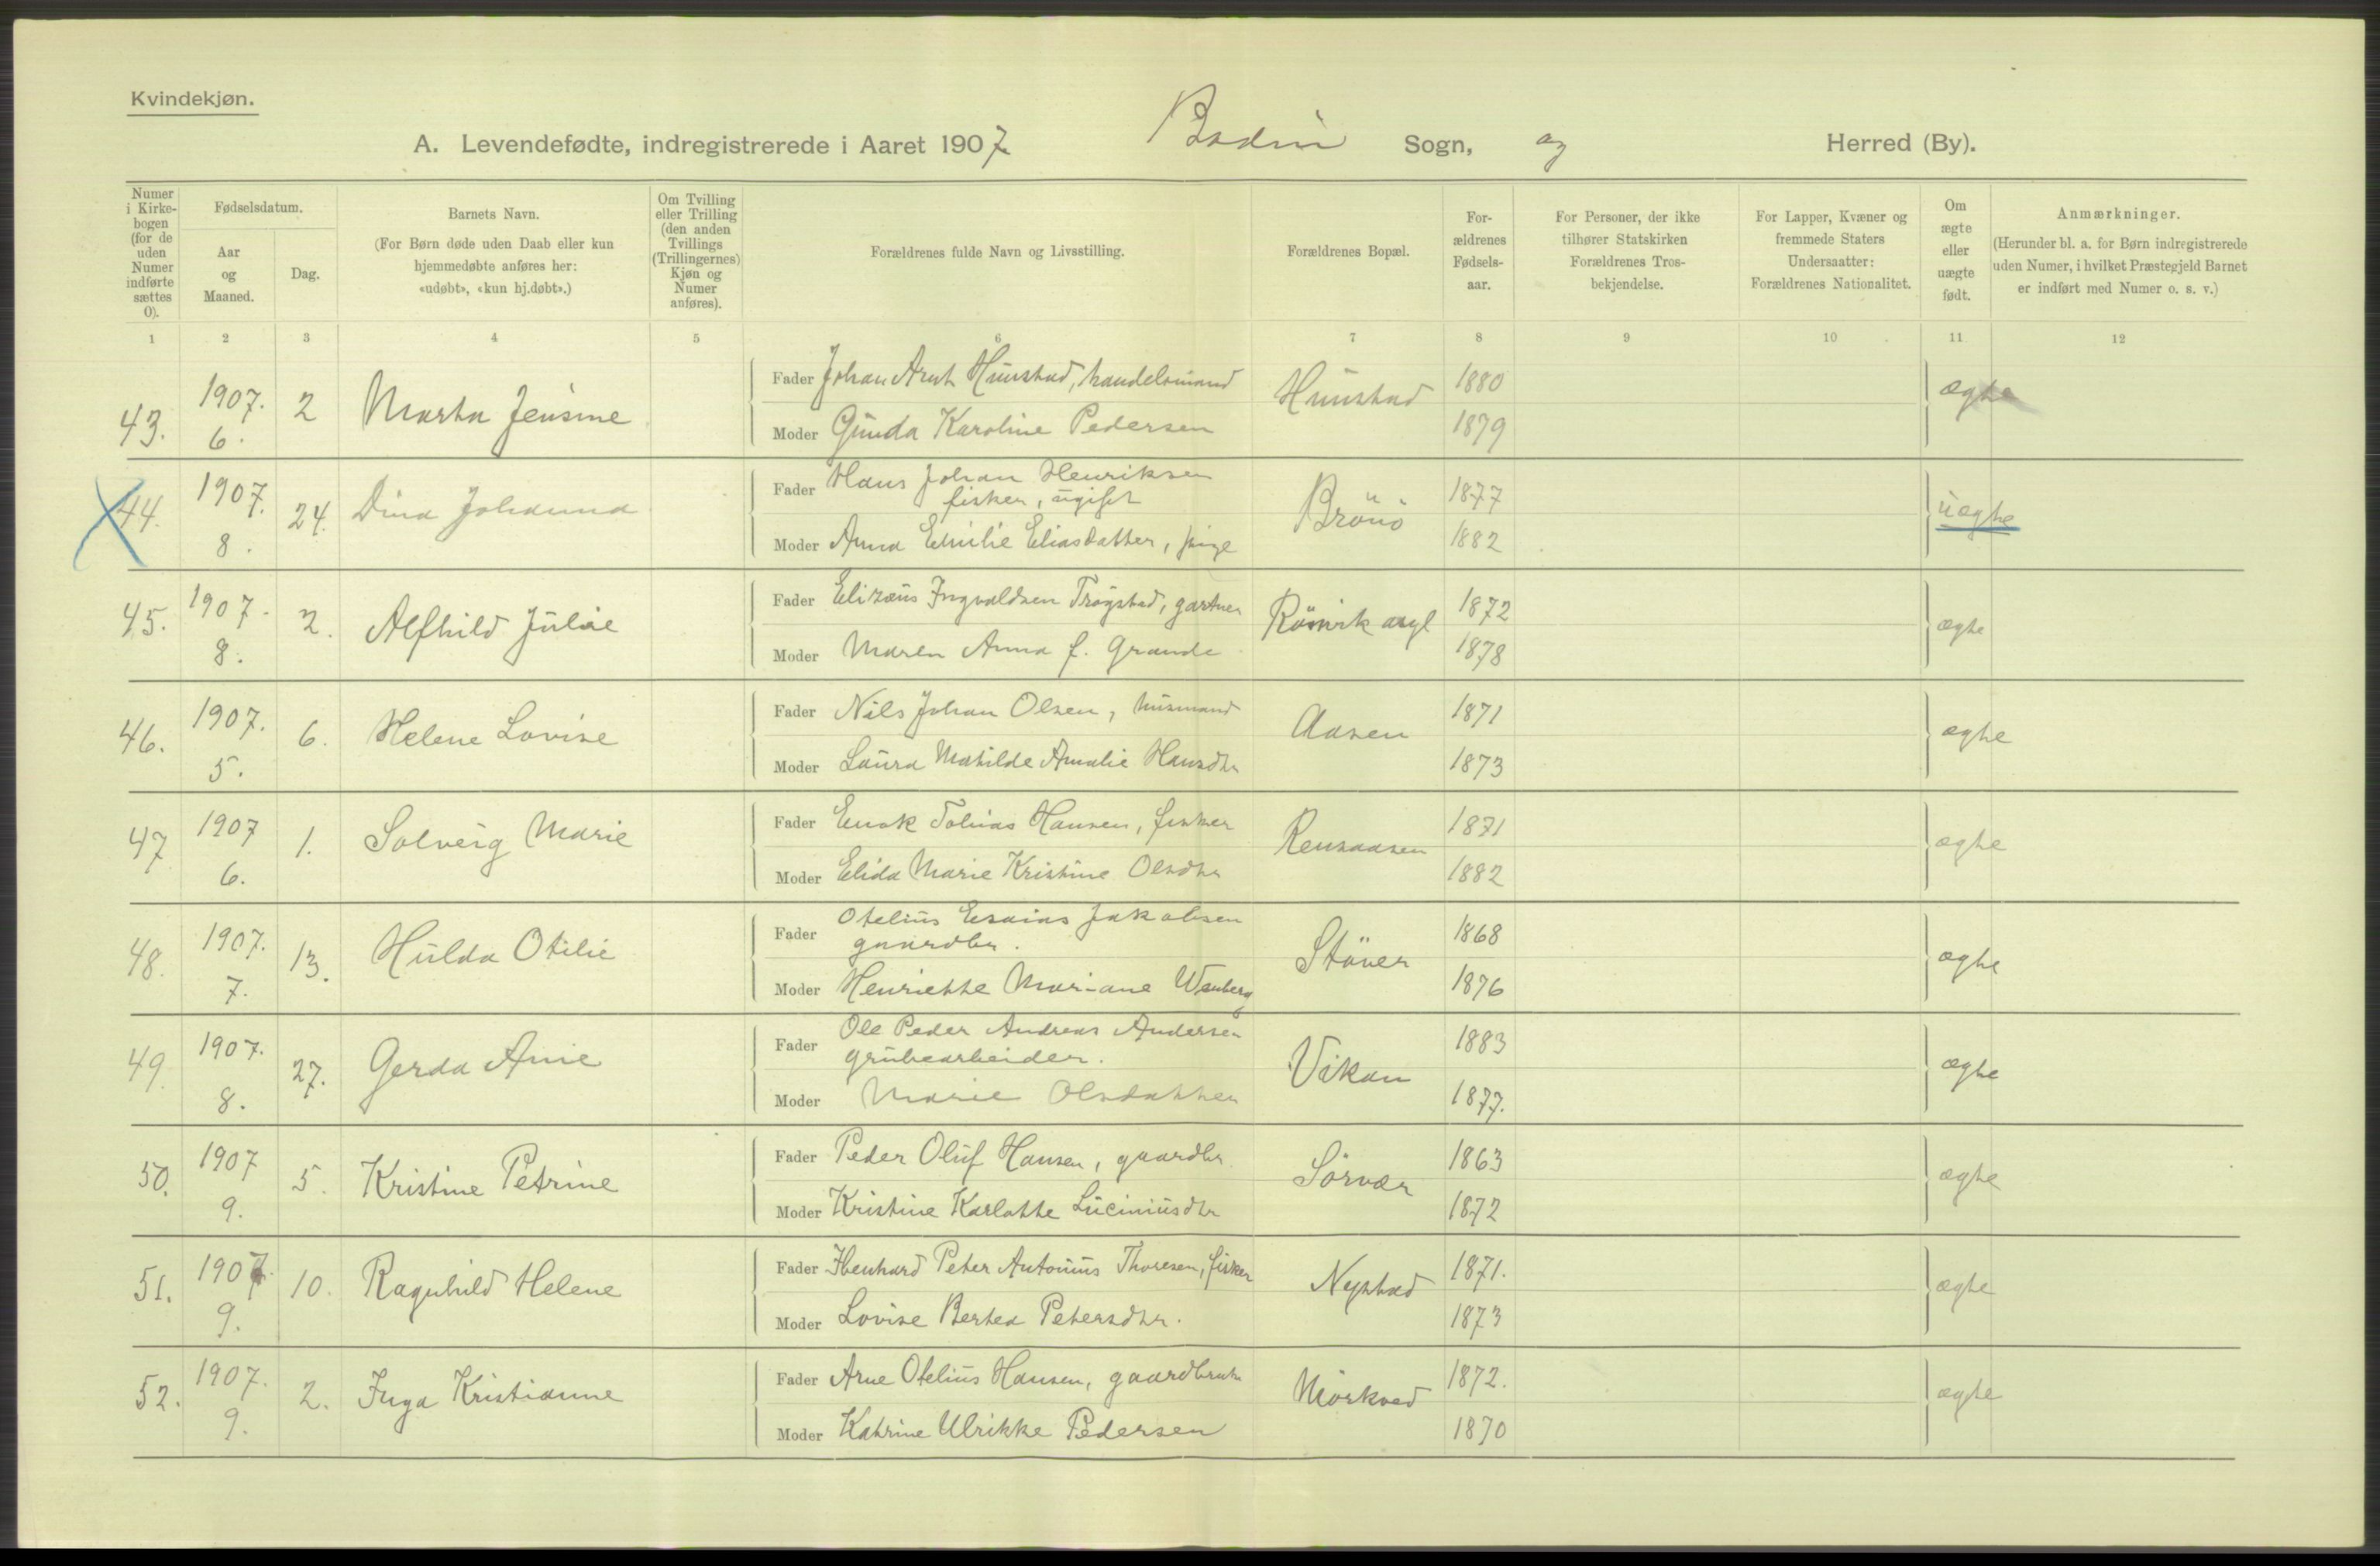 Kvindekjøn.
A. Levendefødte, indregistrerede i Aaret 1907. Bodin Sogn, og Herred (By).
Numer i Kirke-bogen (for de uden Numer indførte sættes 0).
Fødselsdatum.
Aar og Maaned.
Dag.
Barnets Navn.
(For Børn døde uden Daab eller kun hjemmedøbte anføres her: «udøbt», «kun hj.døbt».)
Om Tvilling eller Trilling (den anden Tvillings (Trillingernes) Kjøn og Numer anføres).
Forældrenes fulde Navn og Livsstilling.
Forældrenes Bopæl.
For-ældrenes Fødsels-aar.
For Personer, der ikke tilhører Statskirken Forældrenes Tros-bekjendelse.
For Lapper, Kvæner og fremmede Staters Undersaatter: Forældrenes Nationalitet.
Om ægte eller uægte født.
Anmærkninger.
(Herunder bl. a. for Børn indregistrerede uden Numer, i hvilket Præstegjeld Barnet er indført med Numer o. s. v.)
1 2 3 4 5 6 7 8 9 10 11 12
43. 1907. 6. 2 Marta Jensine
Fader Johan Arnt Hunstad, handelsmand Hunstad 1880 ægte
Moder Gunda Karoline Pedersen 1879
44. 1907. 8. 24. Dina Johanna
Fader Hans Johan Henriksen
fisker, ugift Brönö 1877 uægte
Moder Anna Emilie Eliasdatter, pige 1882
45. 1907. 8. 2. Alfhild Julie
Fader Elizæus Ingvaldsen Trögstad, gartner Rönvik asyl 1872 ægte
Moder Maren Anna f. Grande 1878
46. 1907. 5. 6. Helene Lovise
Fader Nils Johan Olsen, husmand Aasen 1871 ægte
Moder Laura Matilde Amalie Hansdtr 1873
47 1907 6. 1. Solveig Marie
Fader Enok Tobias Hansen, fisker Rensaasen 1871 ægte
Moder Elida Marie Kristine Olsdtr 1882
48. 1907. 7. 13. Hulda Otilie
Fader Otelius Esaias Jakobsen
gaardbr. Stöver 1868 ægte
Moder Henriette Mariane Wenberg 1876
49. 1907. 8. 27. Gerda Anie
Fader Ole Peder Andreas Andersen
grubearbeider. Vikan 1883 ægte
Moder Marie Olsdatter 1877.
50. 1907 9. 5. Kristine Petrine
Fader Peder Oluf Hansen, gaardbr. Sörvær 1863 ægte
Moder Kristine Karlotte Luciniusdtr 1872
51. 1907. 9. 10. Ragnhild Helene
Fader Ibenhard Peter Antonius Thoresen, fisker Nystad 1871. ægte
Moder Lovise Bertea Petersdtr. 1873
52. 1907. 9. 2. Inga Kristianne
Fader Arne Otelius Hansen, gaardbruker Mörkved 1872. ægte
Moder Katrine Ulrikke Pedersen 1870